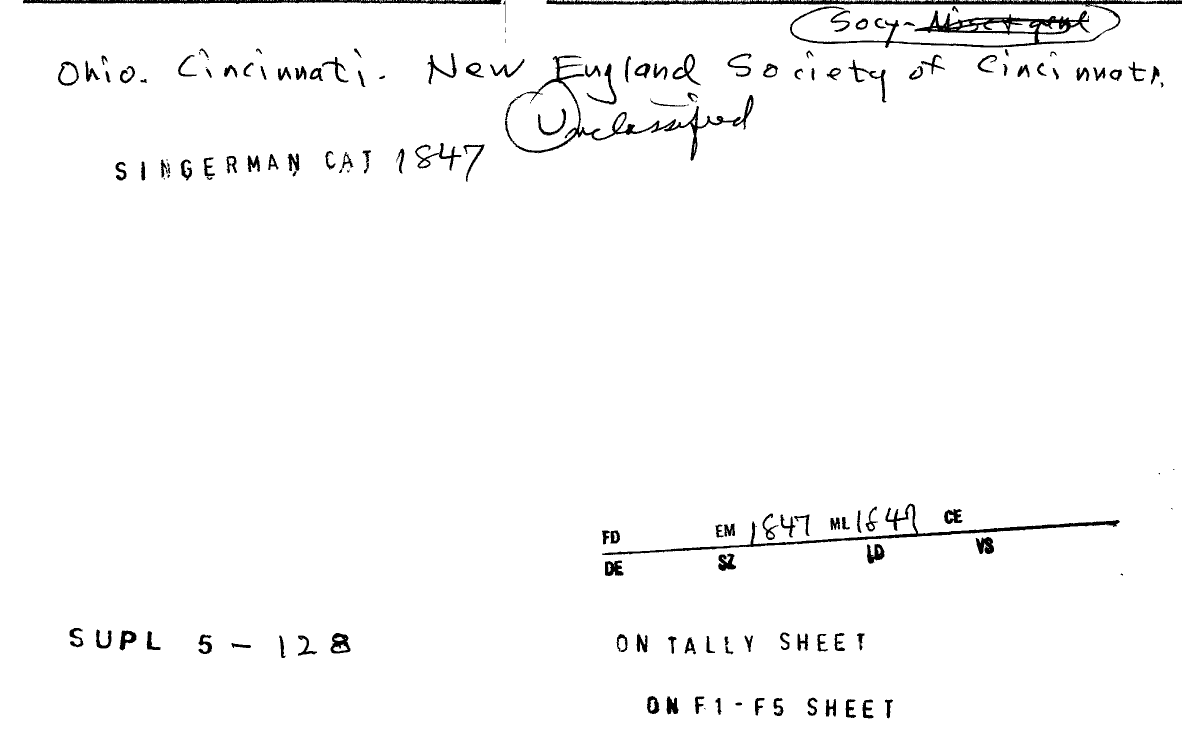 Socy-
Ohio. Cincinnati. New England Society of Cincinnati.
Unclassified
SINGERMAN CAT 1847
FD EM 1847 ML 1847 CE
DE SZ LD VS
SUPL 5-128 ON TALLY SHEET
ON F1-F5 SHEET